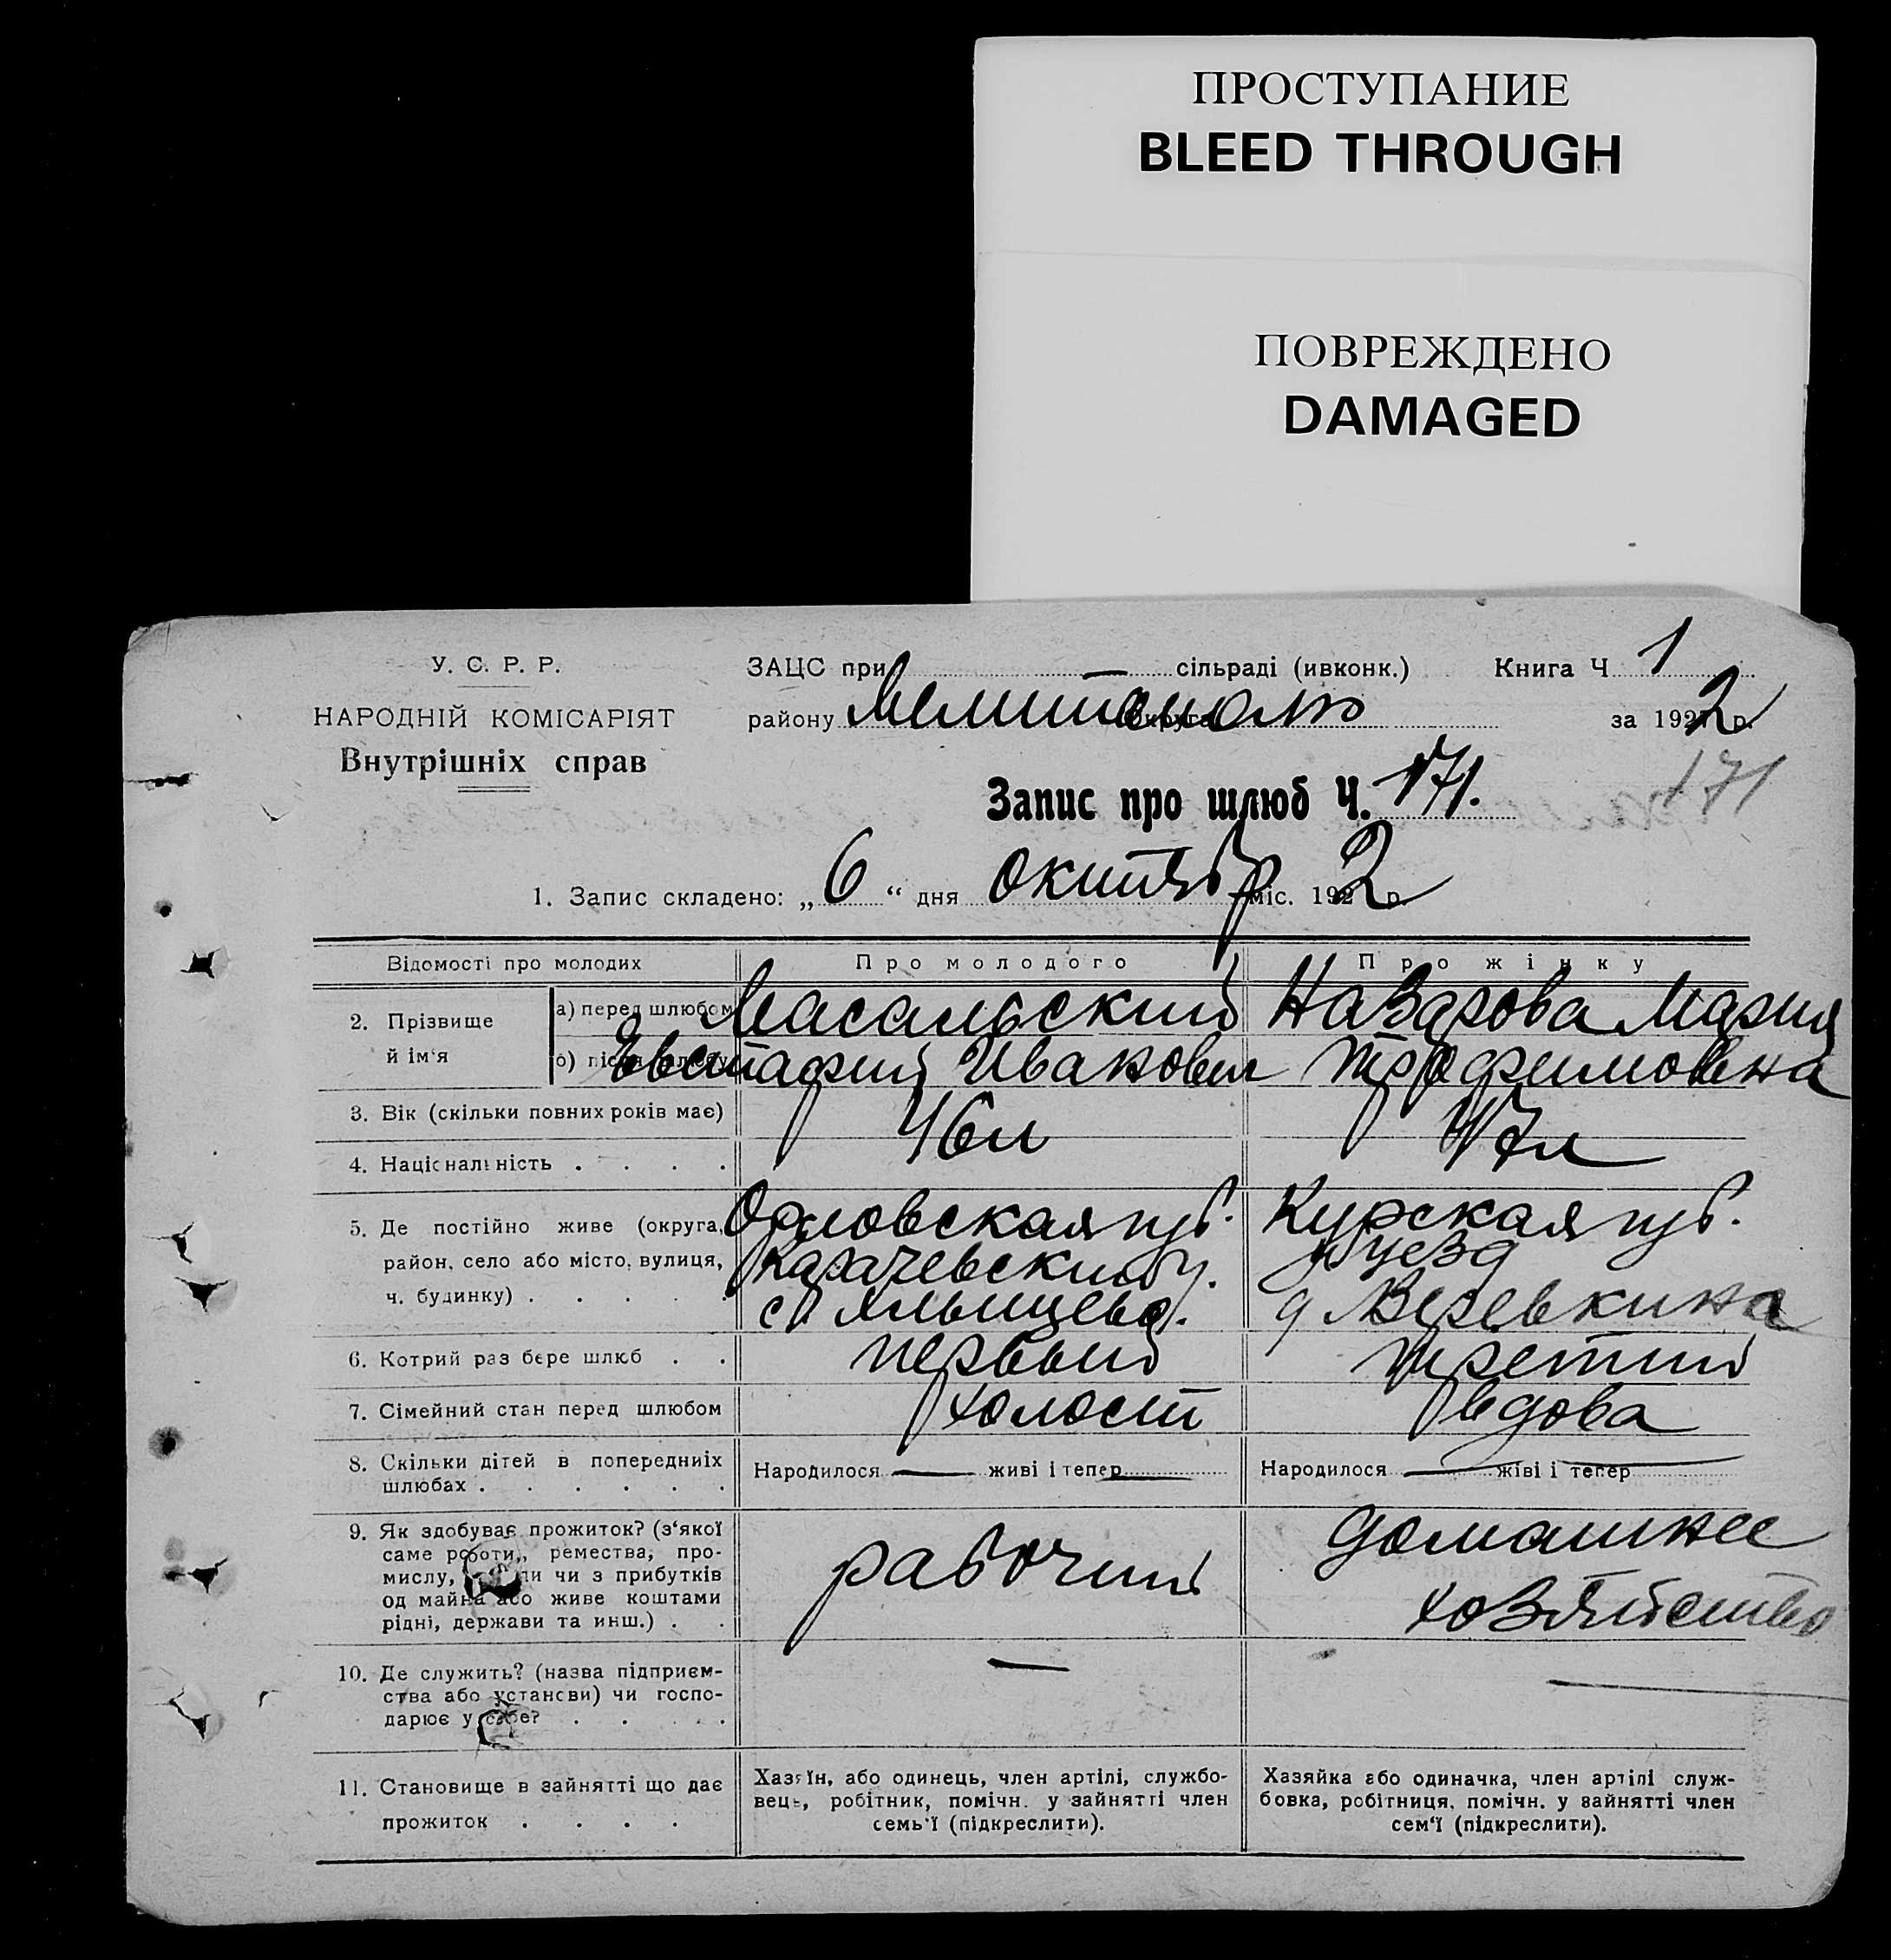 ПРОСТУПАНИЕ
BLEED THROUGH
ПОВРЕЖДЕНО
DAMAGED
У. С. Р. Р.
НАРОДНІЙ КОМІСАРІЯТ
Внутрішніх справ
ЗАЦС при — сільраді (ивконк.) Книга Ч 1
району Мелитополь округа за 1922 р.
Запис про шлюб Ч. 171.
171
1. Запис складено: „ 6 “ дня октябр міс. 1922 р.
Відомості про молодих Про молодого Про жінку
2. Прізвище й ім‘я а) перед шлюбом Масальский Назарова Мария
б) після шлюбу Евстафий Иванович Трофимовна
3. Вік (скільки повних років має) 46 л 47 л
4. Національність . . . .
5. Де постійно живе (округа, Орловская губ. Курская губ.
район, село або місто, вулиця, Карачевский у. уезд
ч. будинку) . . . . . с. д. Веревкина
6. Котрий раз бере шлюб . . первый третий
7. Сімейний стан перед шлюбом холост вдова
8. Скільки дітей в попередниіх Народилося — живі і тепер — Народилося — живі і тепер —
шлюбах . . . . . .
9. Як здобуває прожиток? (з‘якої рабочий домашнее
саме роботи, ремества, про-
мислу, чи з прибутків хозяйство
од майна або живе коштами
рідні, держави та инш.) . .
10. Де служить? (назва підприєм- —
ства або установи) чи госпо-
дарює у себе? . . . . —
11. Становище в зайнятті що дає Хазяїн, або одинець, член артілі, службо- Хазяйка або одиначка, член артілі служ-
вець, робітник, помічн. у зайнятті член бовка, робітниця, помічн. у зайнятті член
прожиток . . . . семь‘ї (підкреслити). сем‘ї (підкреслити).